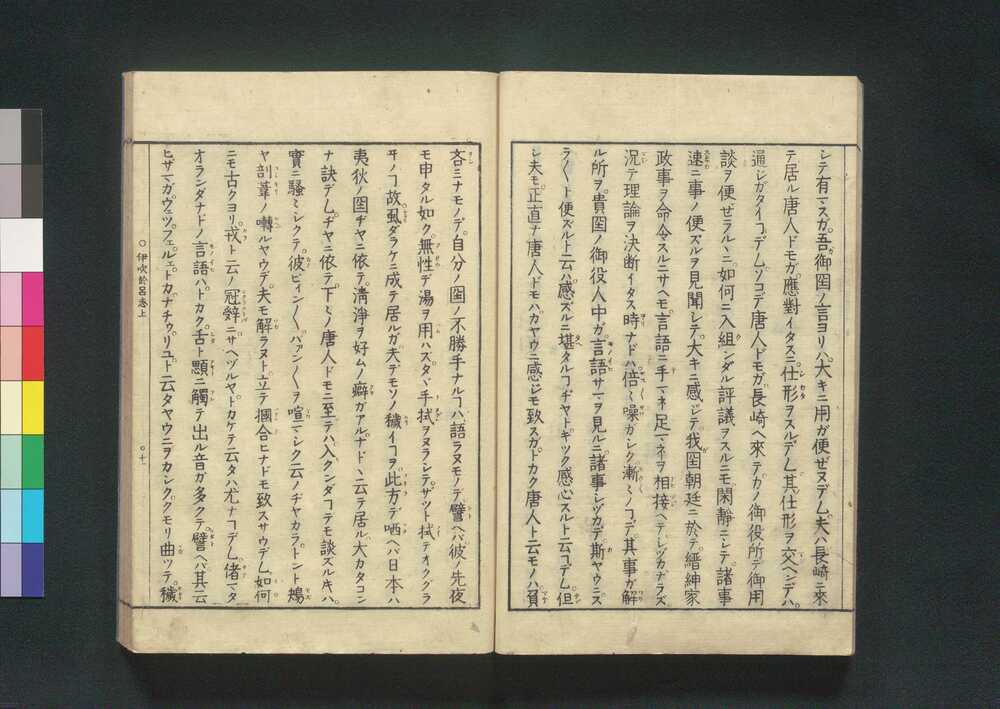 シテ有マスガ。吾御国ノ言ヨリハ。大キニ用ガ便ゼヌデム。夫ハ長崎ニ來
テ居ル唐人ドモガ應對イタスニ。仕形ヲスルデム。其仕形ヲ交ヘンデハ。
通ジガタイヿデム。ソコデ唐人ドモガ。長崎ヘ來テ。カノ御役所デ御用
談ヲ便ゼラルヽニ。如何ニ入組ンダル評議ヲスルニモ。閑靜ニシテ。諸事
速ニ事ノ便ズルヲ見聞シテ。大キニ感ジテ。我国朝廷ニ於テ。縉紳家
政事ヲ命令スルニサヘモ。言語ニ手マネ足マネヲ相接ヘテ。シヅカナラズ
況テ理論ヲ決断イタス時ナドハ。倍ミ噪ガシク。漸ミノヿデ其事ガ解
ル所ヲ。貴国ノ御役人中ガ。言語サマヲ見ルニ。諸事シヅカデ。斯ヤウニス
ラ〱ト便ズルト云ハ。感ズルニ堪タルヿヂヤト。ギツク感心スルト云ヿデム。但
シ夫モ。正直ナ唐人ドモハ。カヤウニ感ジモ致スガ。トカク唐人ト云モノハ。貧
吝ミナモノデ。自分ノ国ノ不勝手ナルヿハ。語ラヌモノデ。譬ヘバ。彼ノ先夜
モ申タル如ク。無性デ湯ヲ用ハズ。タヾ手拭ヲヌラシテ。サツト拭テオククラ
ヰノヿ故。虱ダラケニ成テ居ルガ。夫デモソノ穢イヿヲ。此方デ哂ヘバ。日本ハ
夷狄ノ国ヂヤニ依テ。清淨ヲ好ムノ癖ガアル。ナドヽ云テ居ル。大カタコン
ナ訣デム。ヂヤニ依テ。下ミノ唐人ドモニ至テハ。入クンダヿテモ談ズルキハ。
實ニ騒ミシクテ。彼ピイン〱。パアン〱ヲ。喧マシク云ノヂヤカラ。トント鵙
ヤ剖葦ノ囀ルヤウデ。夫モ解ラヌト。立テ摑合ヒナドモ致スサウデム。如何
ニモ古クヨリ。戎ト云ノ冠辭ニ。サヘヅルヤ。トカケテ云タハ。尤ナヿデム。偖マタ
オランダナドノ言語ハ。トカク舌ト顋ニ觸テ。出ル音ガ多クテ。譬ヘバ其云
ヒザマガ。ヴェツ。フェルェト。カナチゥリユドト云タヤウニ。ヲカシク。クモリ曲ツテ。穢
〇伊吹於呂志上
〇十一